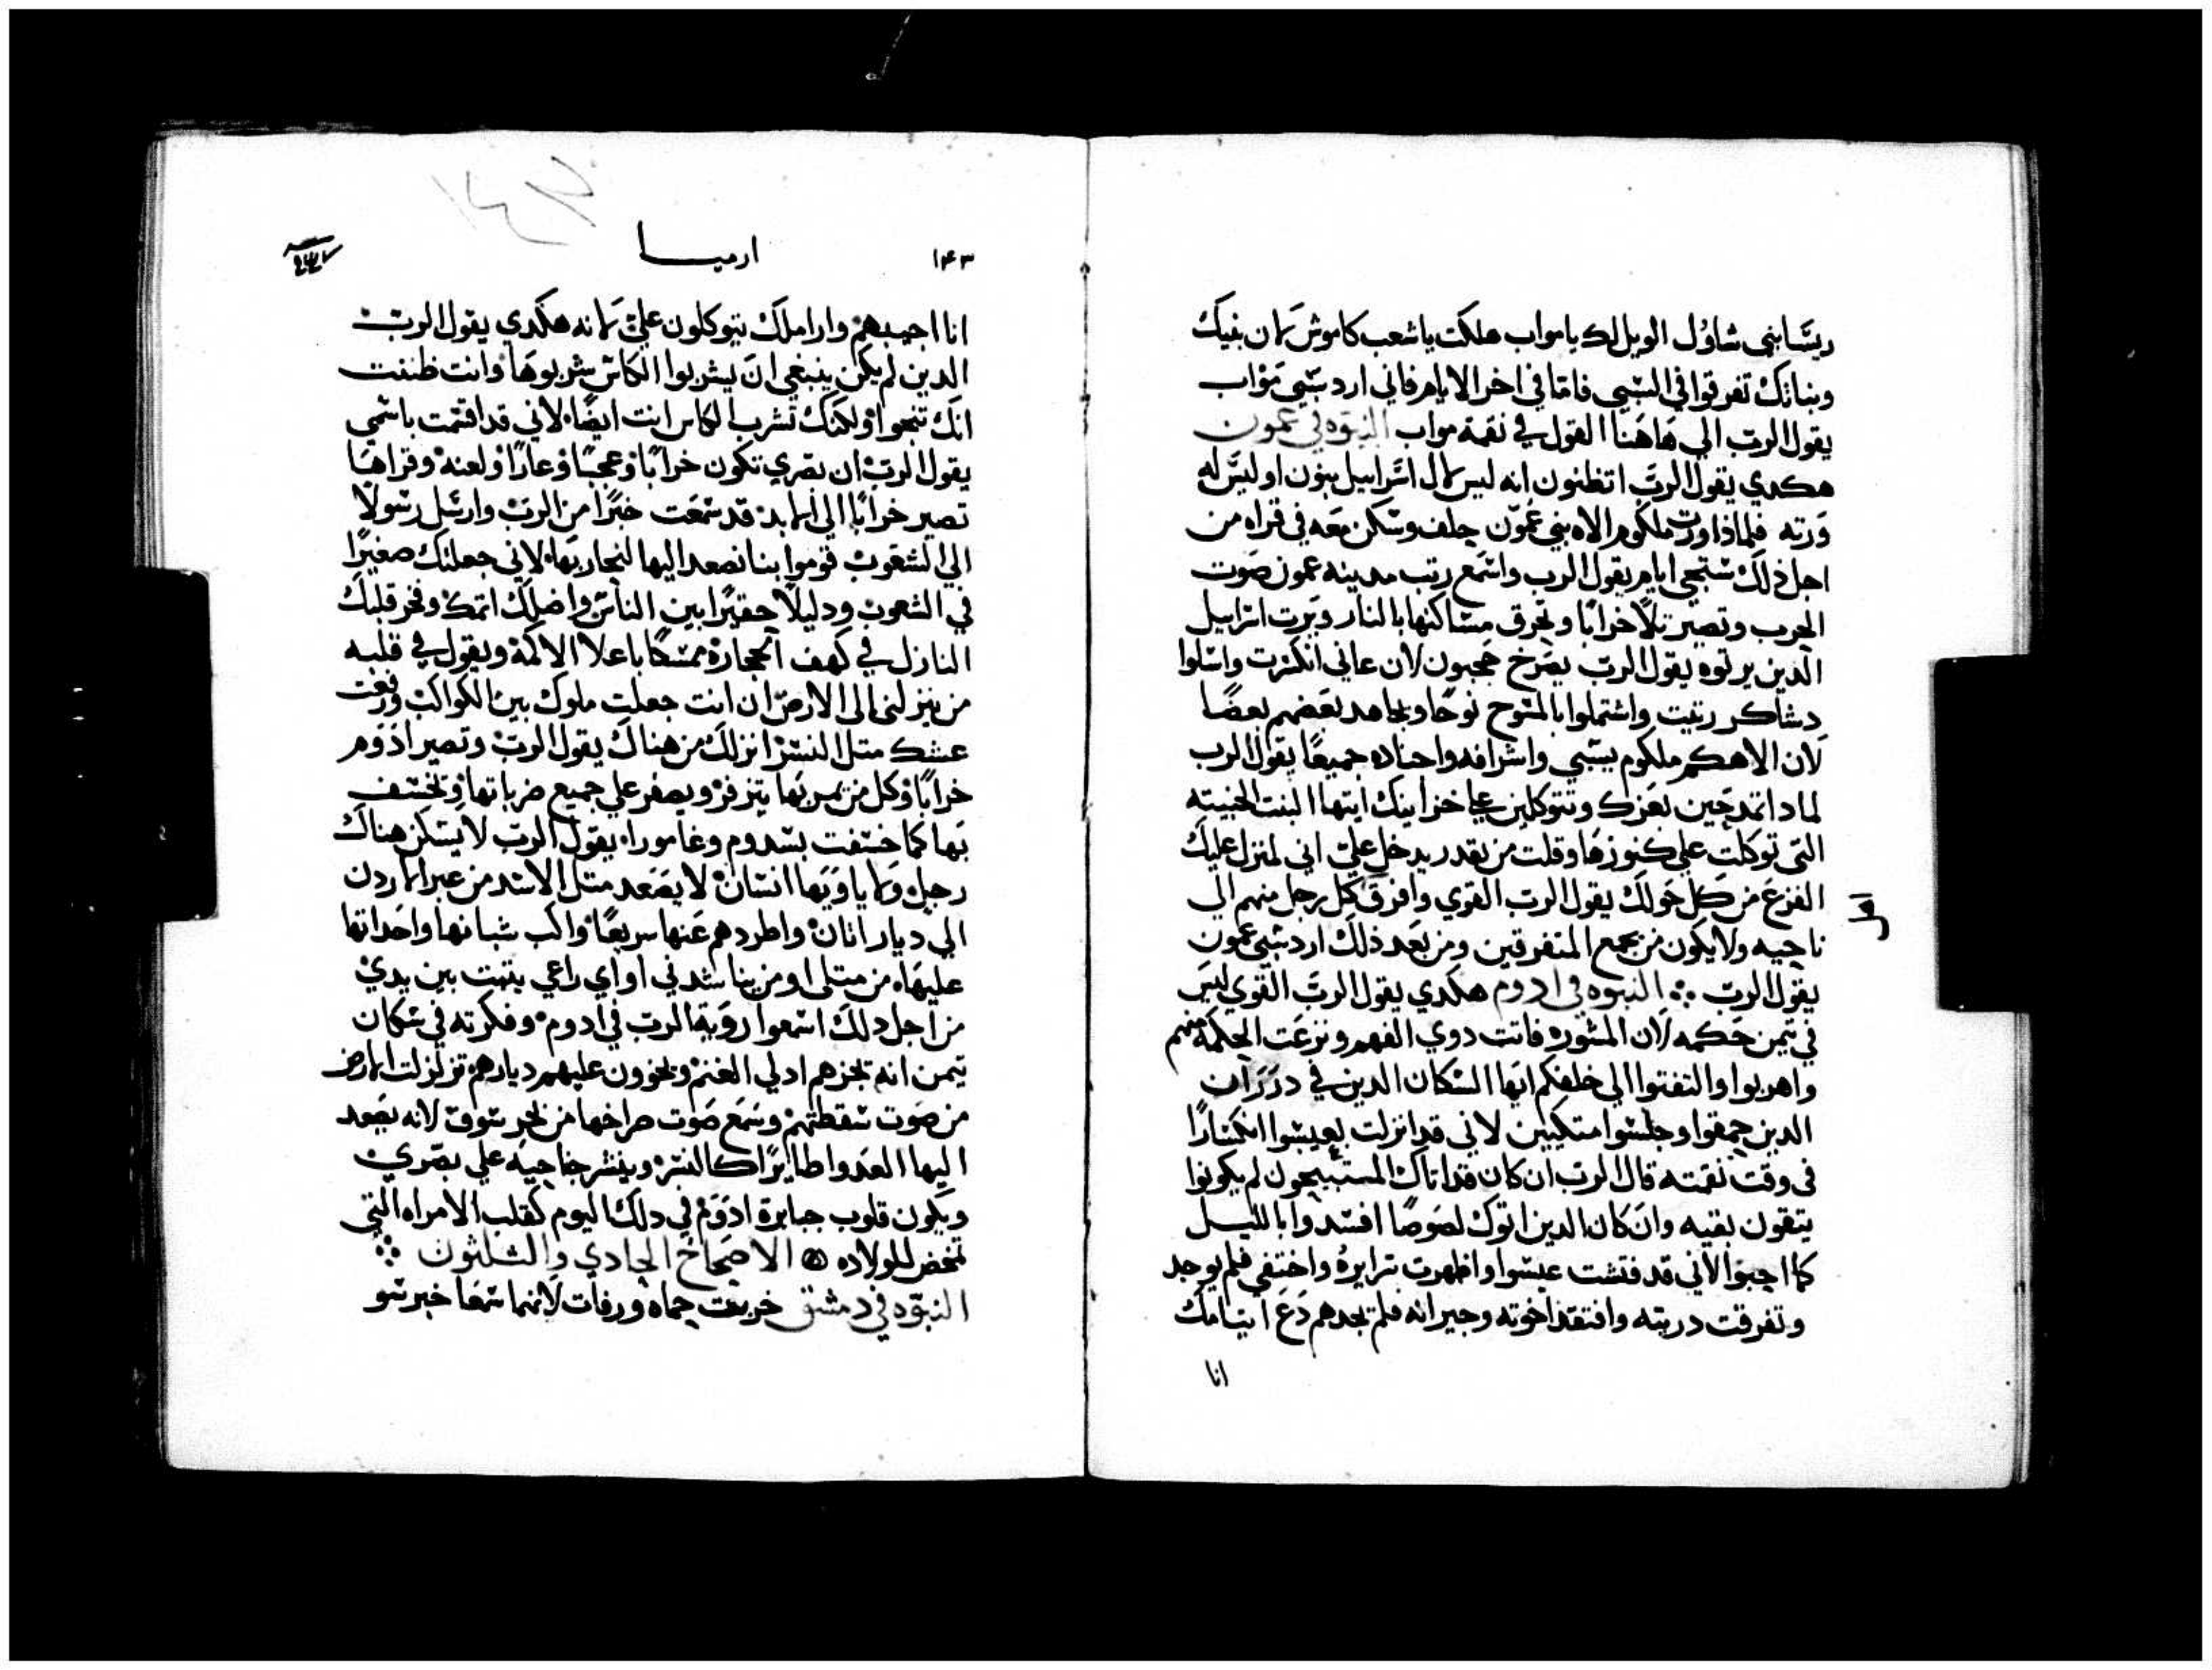 ريسا بني شاوُل الويل لك يا مواب هلكت يا شعب كاموش لان بنيك
وبناتك تفرقوا في السبي فامّا في اخر الايام فاني ارد سَبي مَوْاب
يقول الرب الي هَاهَنا القول في نقمة مواب النبوه في عمون
هكدي يقول الربَّ اتظنون انه ليس لال اسَراييل بنون او ليسَ له
وَرته فلماذا ورث ملكوم الاه بني عمّون جلف وسكن معَه في قراه من
اجل ذلك ستجي ايام يقول الرب واسَمع رتب مدينه عمون صَوت
الحرب وتصير تلاً خرابًا وتحرق مسَاكنها بالنار ويرت اسَراييل
الدين يرتوه يقول الرب يصَرخ حَجبون لان عاني انكسَرت واسَلوا
دسَاكر ربت واشتملوا بالمسَوح نوحًا ويجاهد بعَضهم بعضًا
لان الاهكم ملكوم يسَبي واشرافه واحناده جميعًا يقول الرب
لمادا تمدحَين بعَزك وتتوكلين علي خزاينك ايتها البنت الحبيته
التي توكلت علي كنوزهَا وقلت من يقدر يدخل عليّ اني لمنزل عليك
الفزعَ من كل حَولك يقول الرب القوي وافرق كل رجل منهم الي
ناحيه ولا يكون من يجمع المتفرقين ومن بعَد ذلك ارد سَبي عمون
يقول الرب النبوه في ادوم هكدي يقول الربَّ القوي ليسَ
في تيمن حَكمه لان المشوره فاتت دوي الفهم ونزعَت الحكمَه منهم
واهربوا والتفتوا الي خلفكم ايّها السَكان الدين في دررَان
الدين حمقوا وجلسَوا متكيين لاني قد انزلت بعيسَوا انكسَارًا
في وقت نقمته قال الرب ان كان قد اتاك المستبيحون لم يكونوا
يتقون بقيه وان كان الدين اتوك لصَوصًا افسَدوا بالليل
كما احبوا لاني قد فتشت عيسَوا واظهرت سَرايرهُ واختفي فلم يوجد
وتفرقت دريته وافتقد اخوته وجيرانه فلم تجدهم دَعَ ايتامك
انا
١٤٣
ارميا
انا احييهم وارامِلكَ يتوكلون عليّ لانه هكدي يقول الرب
الدين لم يكن ينبغي ان يشربوا الكاسَ شربوهَا وانت ظننت
انك تنجوا ولكنك تشرب الكاس انت ايضًا لاني قد اقسَمت باسَمي
يقول الرب ان بصَري تكون خرابًا وعجبًا وعارًا ولعنه وقراهَا
تصير خرابًا الي الابد قد سَمعَت خبرًا من الربّ وارسَل رسَولا
الي الشعوب قوموا بنا نصعد اليها لنحاربَها لاني جعلتك صغيرًا
في الشعوب ودليلاً حقيرًا بين الناسَ واضلك اتمك وفخر قلبك
النازل في كهف الحجاره ممسَكًا باعلا الاكمة ويقول في قلبه
من ينزلني الي الارض ان انت جعلت ملوك بين الكواكب ورفعت
عشك متل النسَر انزلك من هناك يقول الربّ وتصير ادَوم
خرابًا وكل من يمر بَها يتزفر ويصفر علي جميع ضرباتها وتخسَف
بَها كما خسَفت بسَدوم وغامورا يقول الرب لا يسَكن هناك
رجل ولا ياويَها انسَان لا يصَعد متل الاسَد من عبر الاردن
الي ديار اتان واطردهم عَنها سريعًا واكب شبانها واحَداتها
عليهَا من متلي او من يناشدني او اي راعي يتبت بين يديّ
من اجل دلك اسَمعوا روية الرب في ادوم وفكرته في سَكان
تيمن انه تجزهم ادلي الغنم ويخوون عليهم ديارهم تزلزلت الارض
من صَوت سَقطتهم وسَمعَ صَوت صراخها من بحر سَوف لانه يصَعد
اليها العَدوا طايرًا كالنسَر وينشر جناحَيه علي بصَري
ويكون قلوب جبابرة ادوَم في دلك اليوم كقلب الامراه التي
تمخض للولاده الاصحَاحَ الحادي والثلثون
النبوّه في دمشق خربت حماه ورفات لانهما سَمعَا خبر سَو